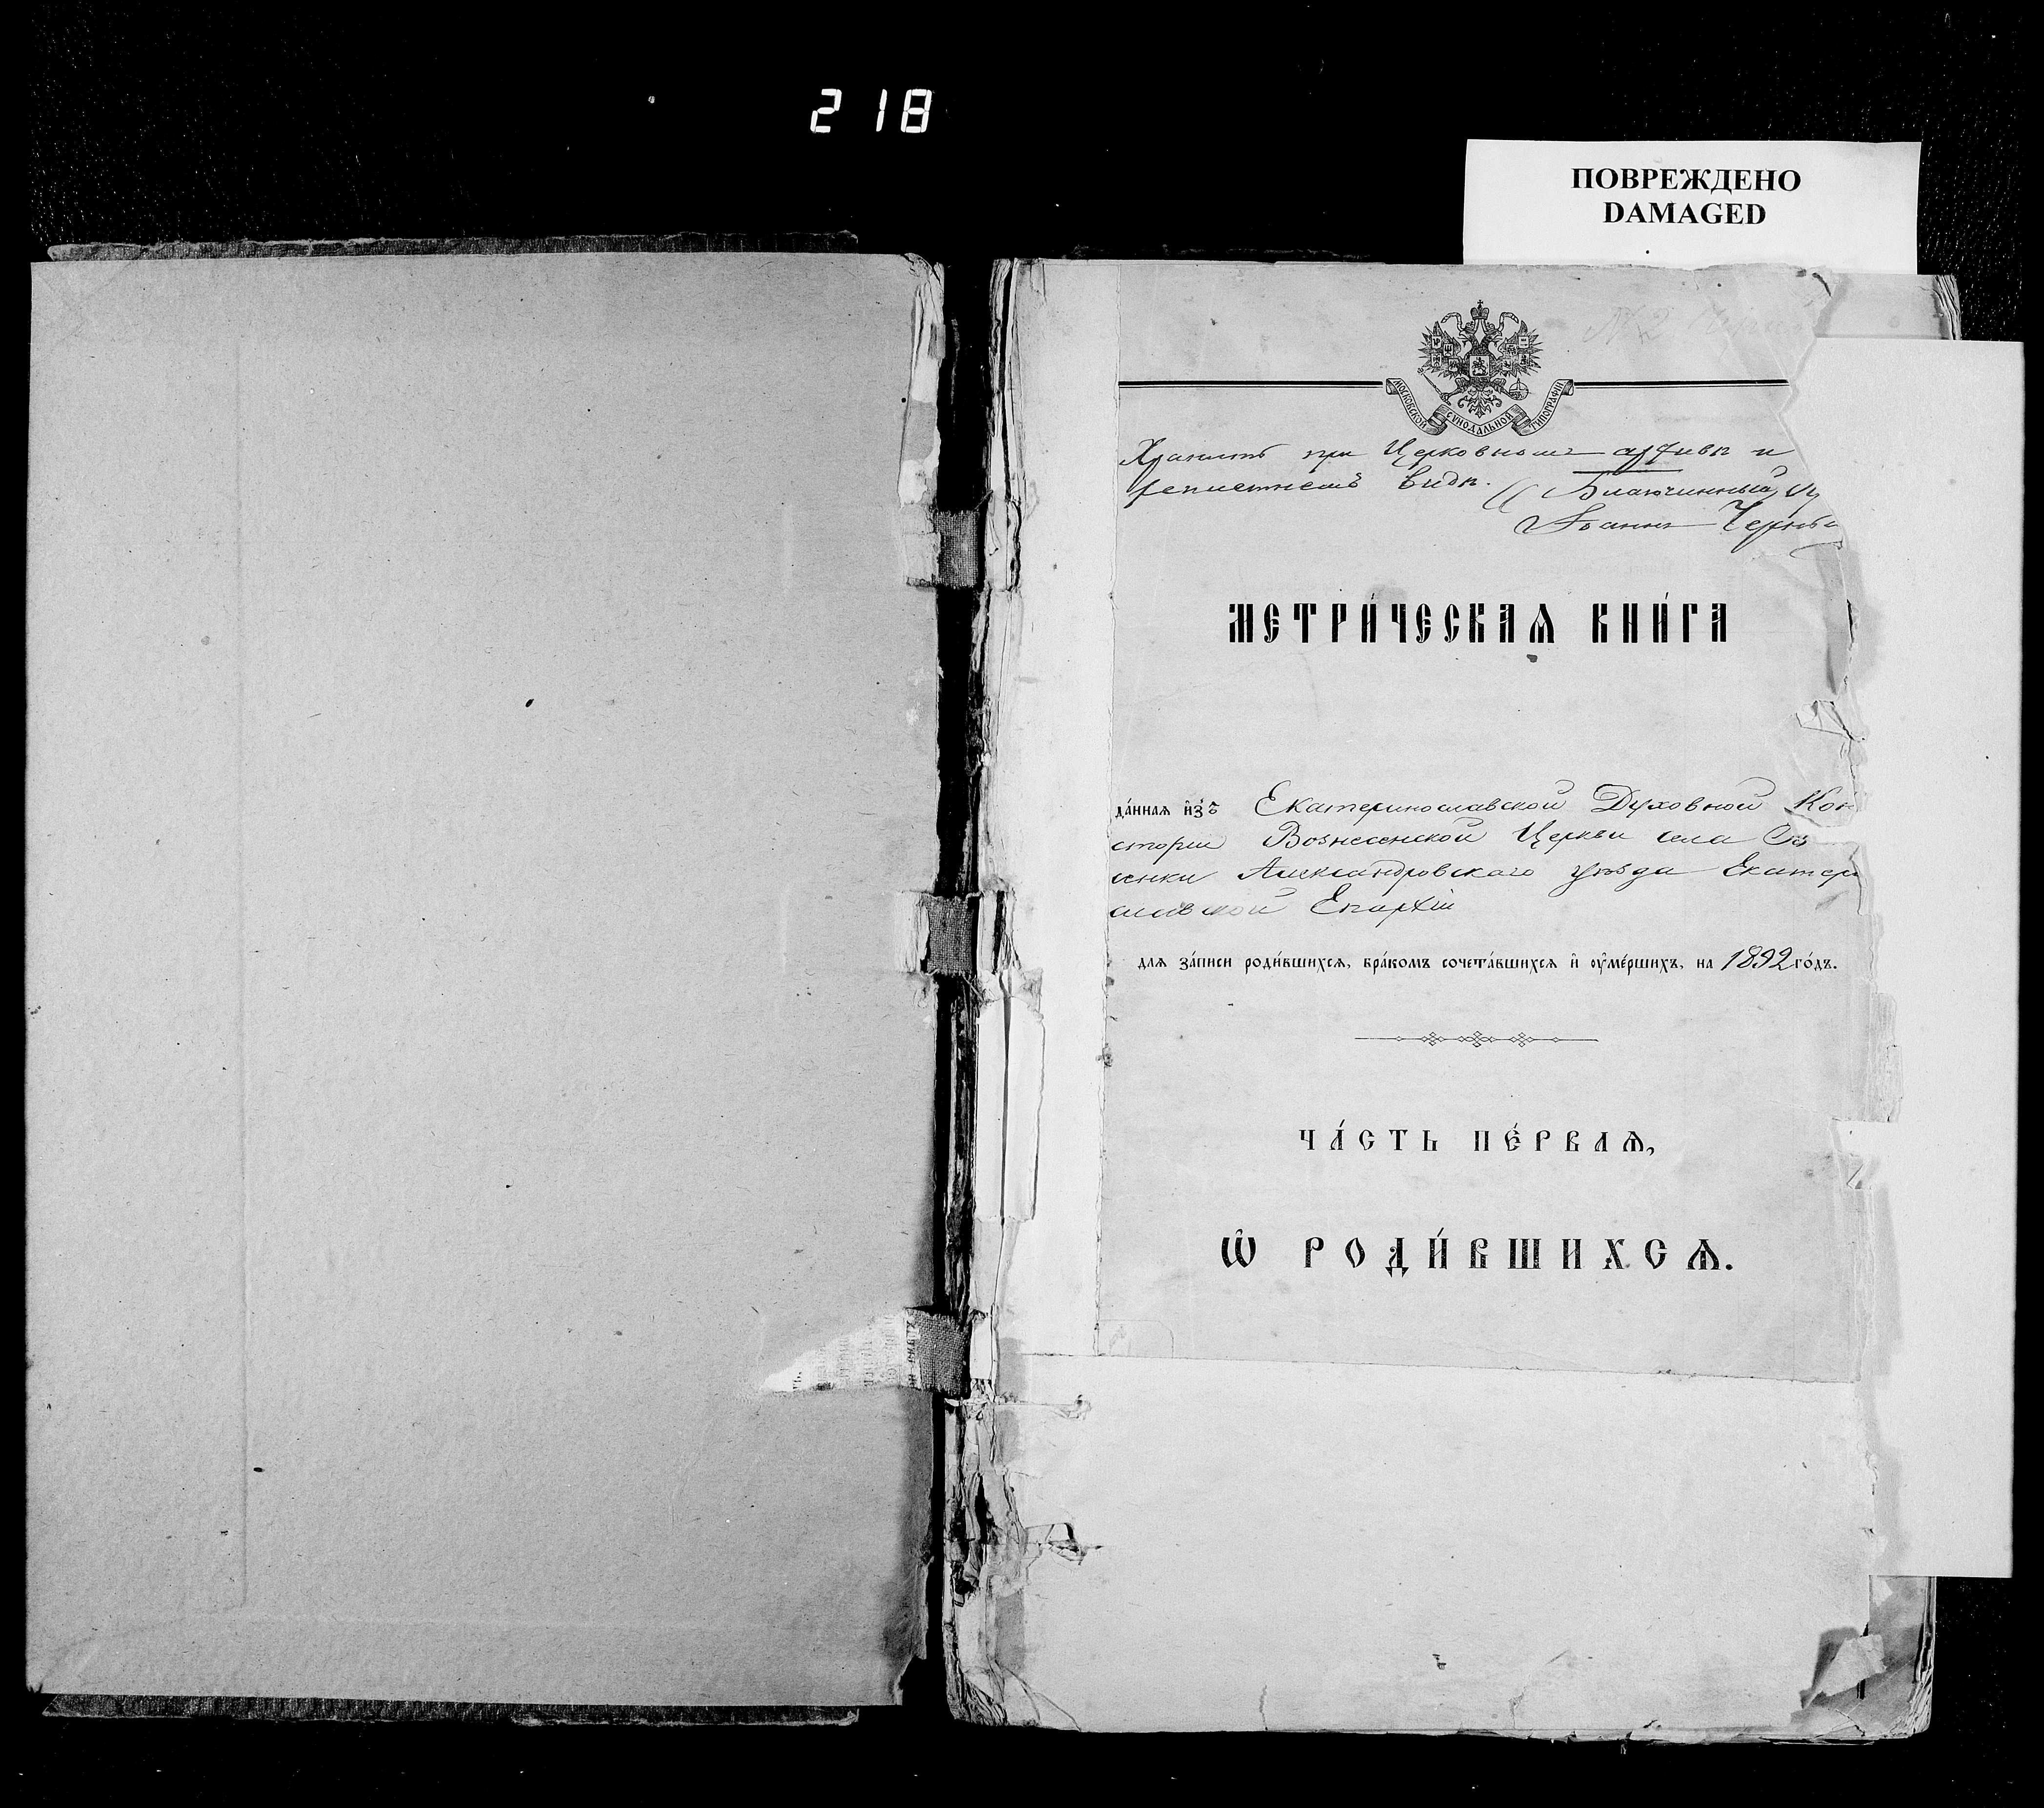 218
ПОВРЕЖДЕНО
DAMAGED
МОСКОВСКОЙ СѴНОДАЛЬНОЙ ТИПОГРАФІИ
Хранить при Церковномъ архивѣ и
видѣ. Благочинный
Іоаннъ
МЕТРИ́ЧЕСКАѦ КНИ́ГА
да́ннаѧ и҆з̾ Екатеринославской Духовной Кон
сторіи Вознесенской Церкви села
Александровскаго уѣзда Екатери
славской Епархіи
длѧ за́писи роди́вшихсѧ, бра́комъ сочета́вшихсѧ и҆ оу҆ме́ршихъ, на 1892 го́дъ.
ЧА́СТЬ ПЕ́РВАѦ,
Ѽ РОДИ́ВШИХСѦ.